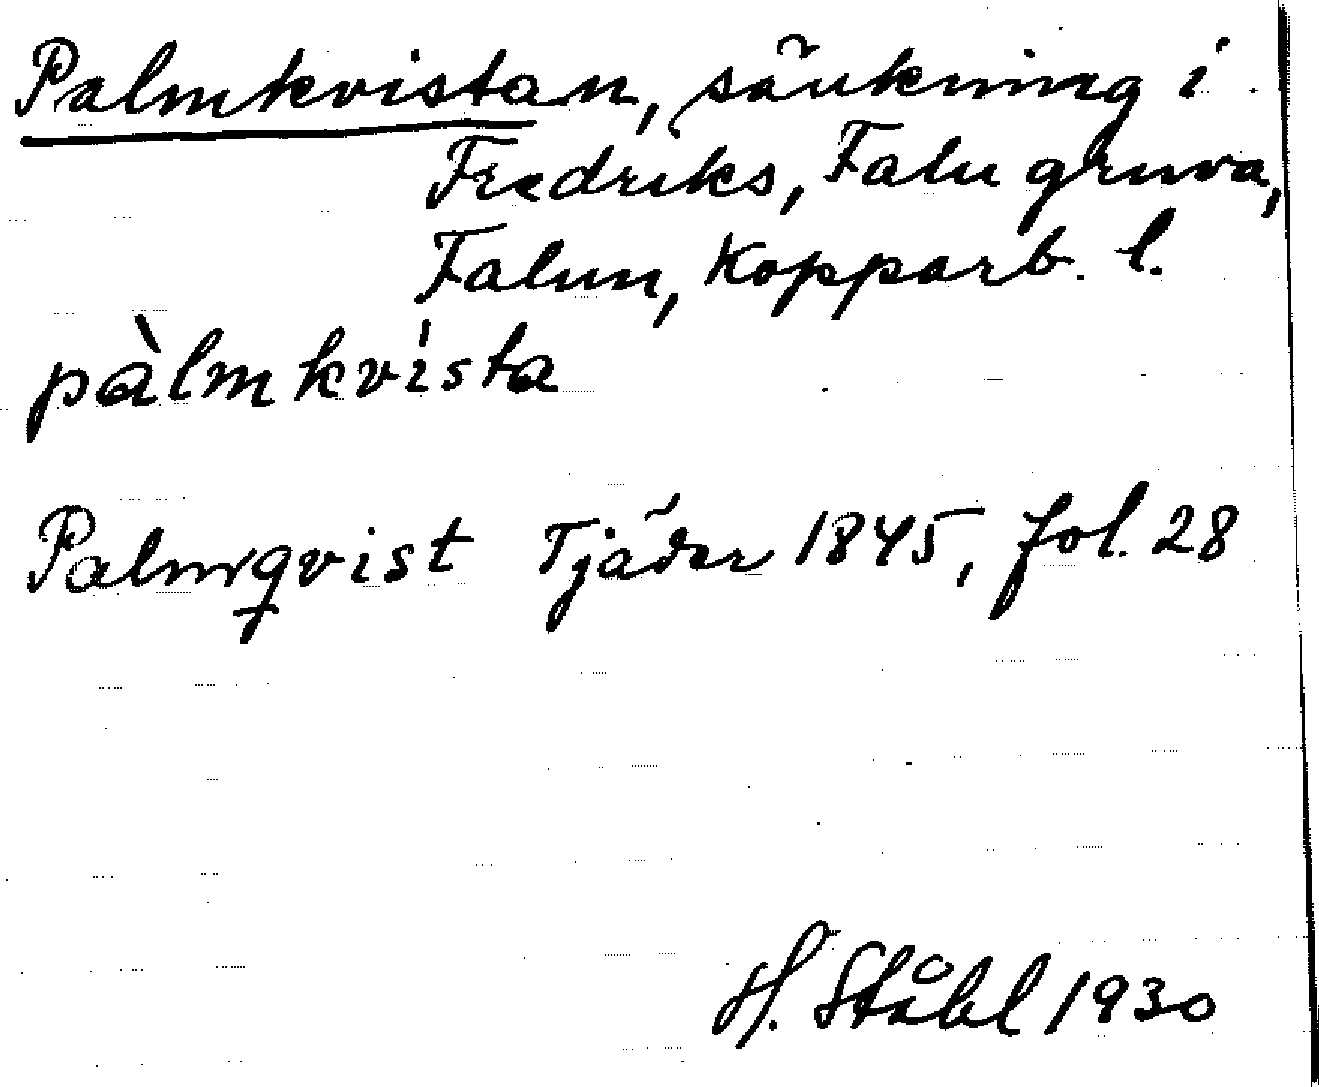 Palmkvistan, sänkning i
Fredriks, Falu gruva,
Falun, Kopparb. l.
pàlmkvísta
Palmqvist Tjäder 1845, fol. 28
H. Ståhl 1930